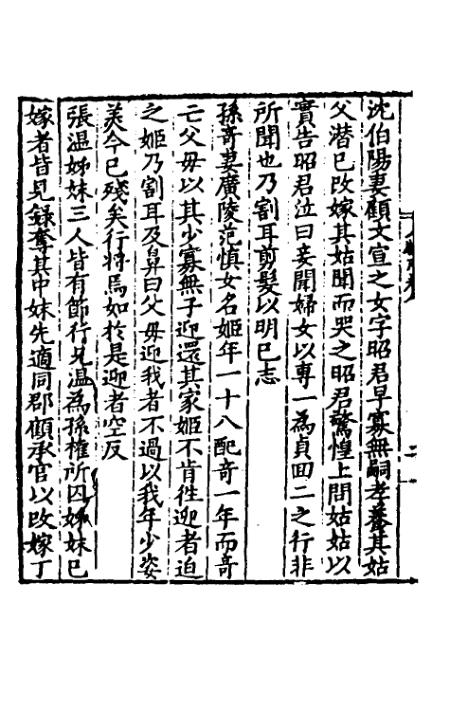 沈伯陽妻顧文宣之女字昭君早寡無嗣孝養其姑
父潜已改嫁其姑聞而哭之昭君驚惶上問姑姑以
實告昭君泣曰妾聞婦女以專一為貞囬二之行非
所聞也乃割耳剪髮以明已志
孫竒妻廣陵范慎女名姬年一十八配竒一年而竒
亡父母以其少寡無子迎還其家姬不肯徃迎者迫
之姬乃割耳及鼻曰父母迎我者不過以我年少姿
美今已殘矣行將焉如於是迎者空反
張温姊妹三人皆有節行兄温為孫權所囚姊妹已
嫁者皆見錄奪其中妹先適同郡顧承官以改嫁丁